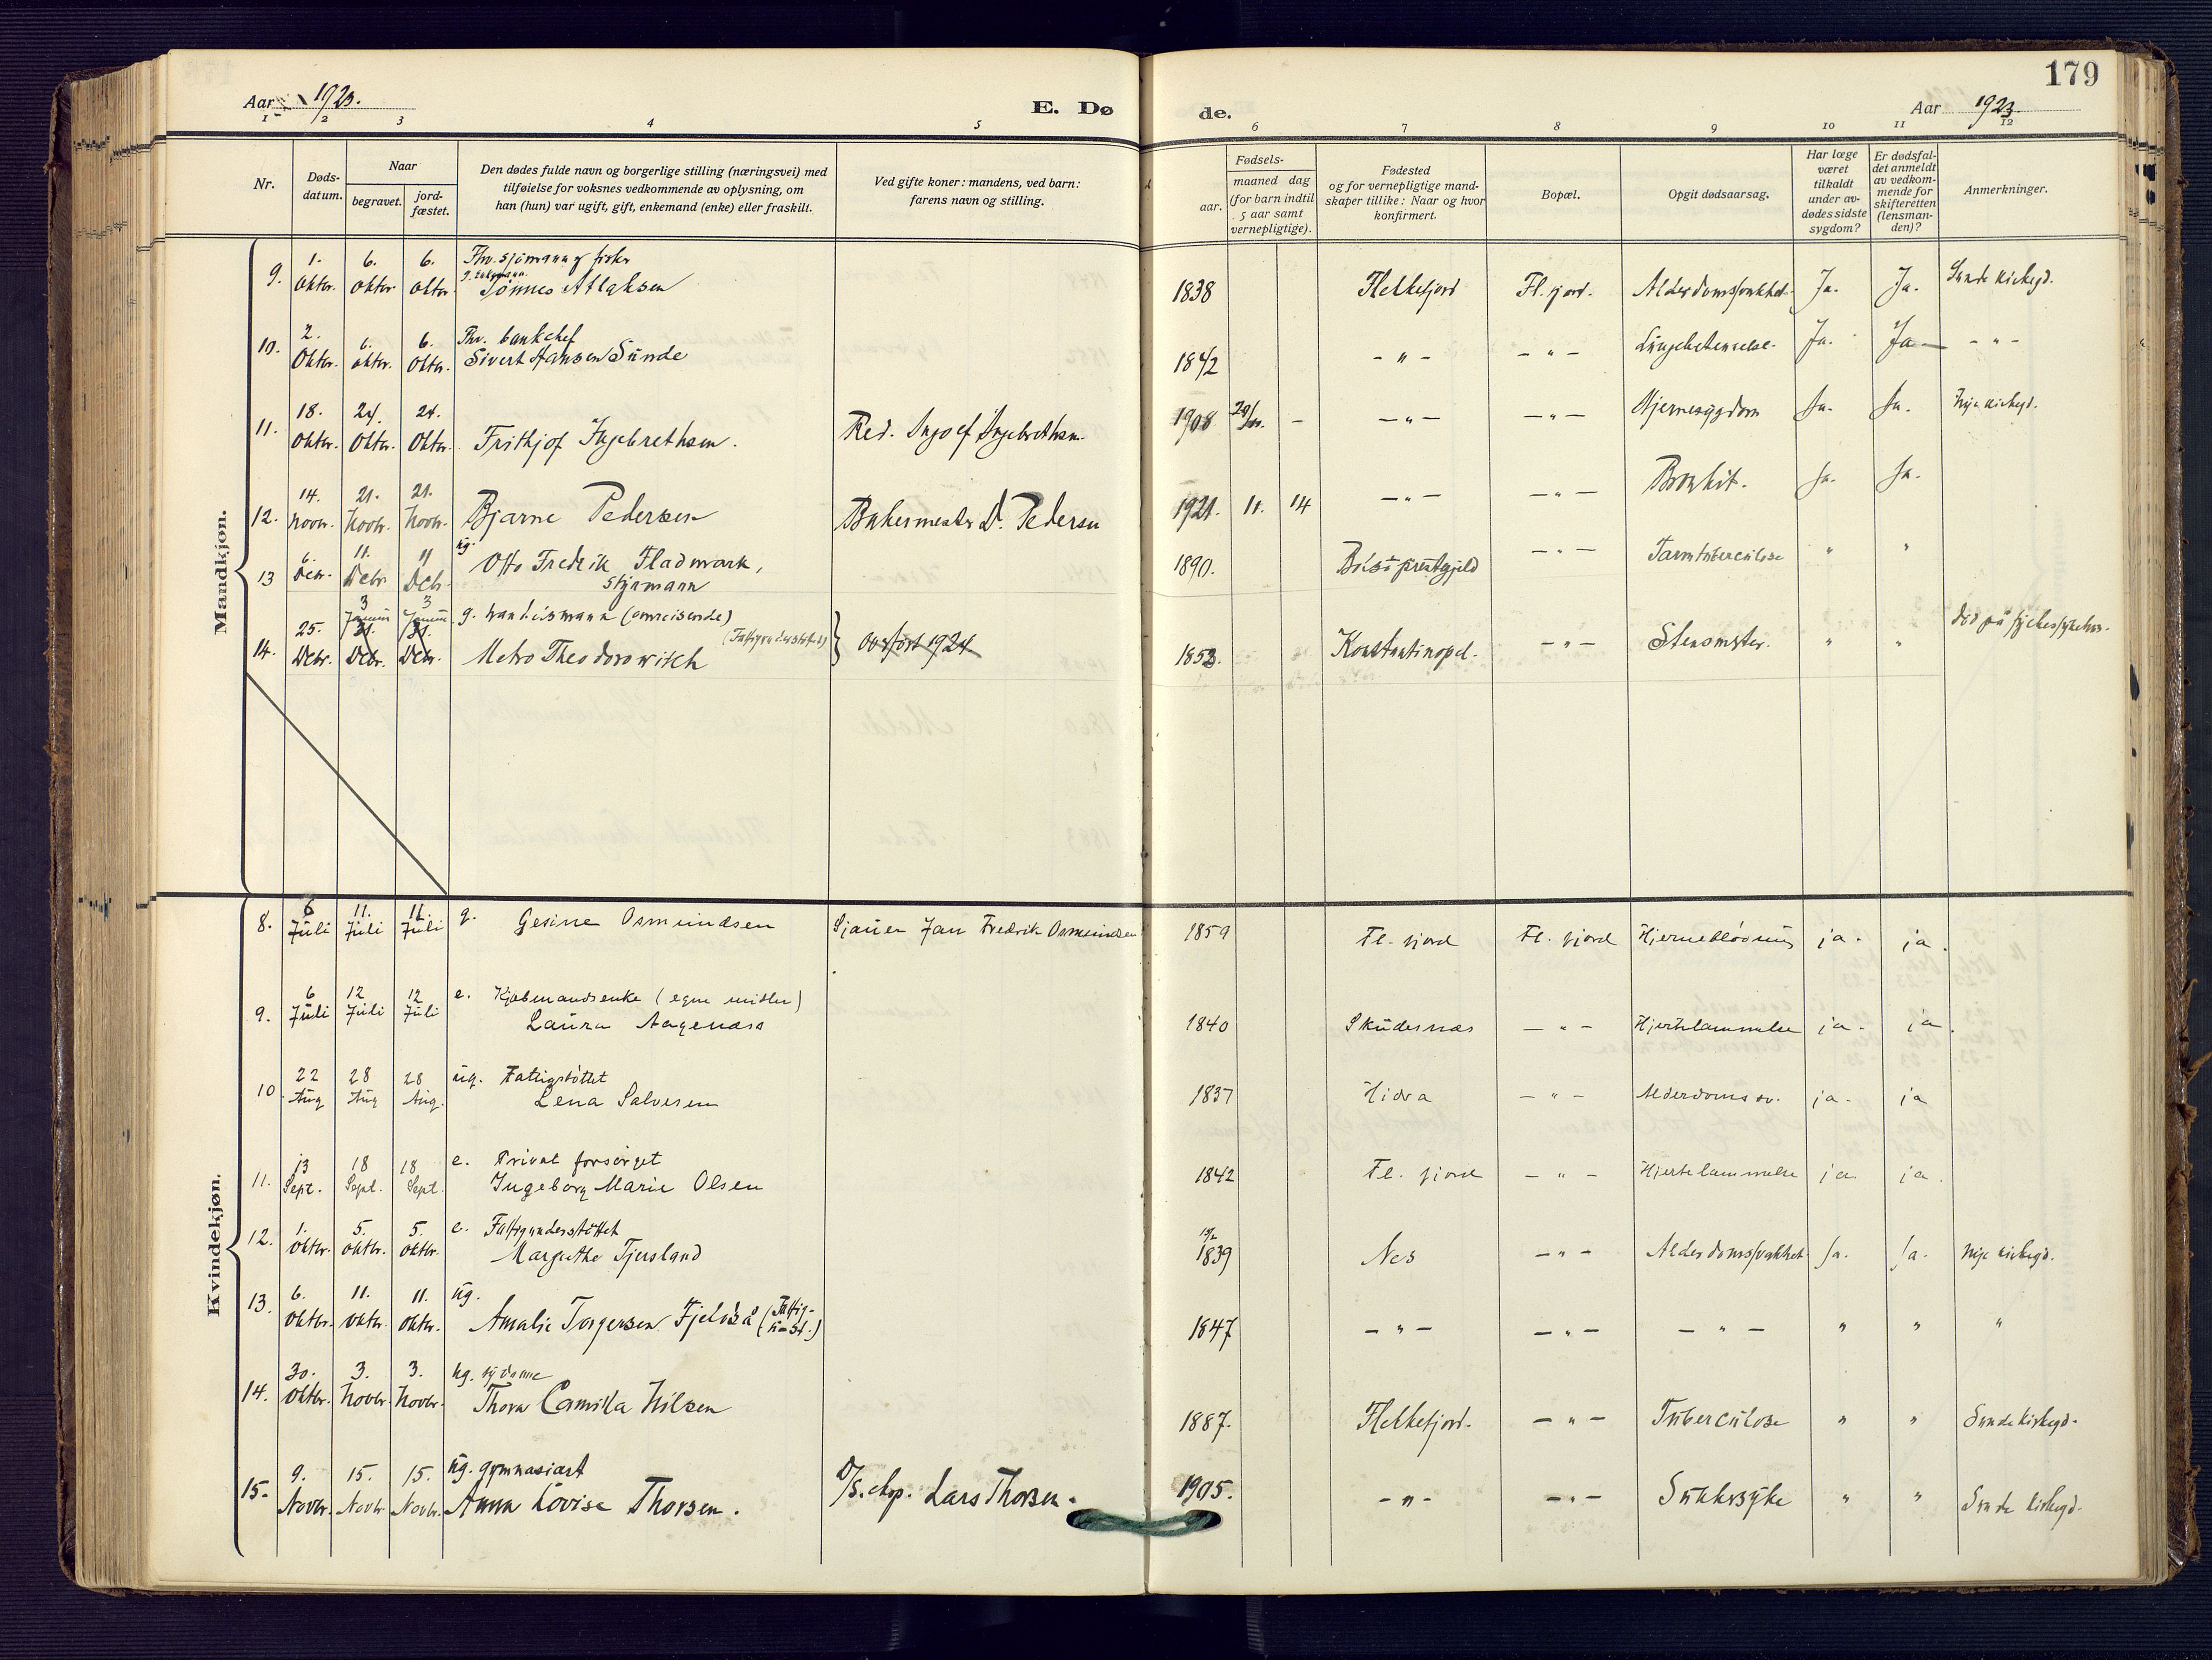 Aar 1923.
E. Dø
de.
Aar 1923.
179
1 2 3 4 5 6 7 8 9 10 11 12
Nr.
Døds-datum.
Naar
begravet.
jord-fæstet.
Den dødes fulde navn og borgerlige stilling (næringsvei) med
tilføielse for voksnes vedkommende av oplysning, om
han (hun) var ugift, gift, enkemand (enke) eller fraskilt.
Ved gifte koner: mandens, ved barn:
farens navn og stilling.
Fødsels-
aar.
maaned dag
(for barn indtil
5 aar samt
vernepligtige).
Fødested
og for vernepligtige mand-
skaper tillike: Naar og hvor
konfirmert.
Bopæl.
Opgit dødsaarsag.
Har læge
været
tilkaldt
under av-
dødes sidste
sygdom?
Er dødsfal-
det anmeldt
av vedkom-
mende for
skifteretten
(lensman-
den)?
Anmerkninger.
Mandkjøn.
9. 1. Oktbr. 6. Oktbr. 6. Oktbr. Fhv. sjømann og fisker
Tønnes Atlaksen 1838 Flekkefjord Fl.fjord. Alderdomssvakhet. Ja. Ja. Sunde kirkegd.
10. 2. Oktbr. 6. oktbr. 6. Oktbr. Fhv. bankchef
Sivert Hansen Sunde 1842 - " - - " - Lungebetennelse. Ja. Ja - - " -
11. 18. Oktbr. 24. Oktbr. 24. Oktbr. Frithjof Ingebrethsen. Red. Ingolf Ingebrethsen. 1908 - - " - - " - Hjernesygdom Ja. Ja. Nye kirkegd.
12. 14. Novbr. 21. Novbr. 21. Novbr. Bjarne Pedersen Bakermester D. Pedersen 1921. 11. 14 - " - - " - Bronkit. Ja. Ja.
13 6. Debr. 11. Debr 11 Debr. ug. Otto Fredrik Fladmark,
styrmann 1890. Bolsö prestegjeld - " - Tarmtuberculose " "
14. 25. Debr. 3 Januar 31. Debr. 3 Januar 31. Debr. g. handelsmann (omreisende)
(Fattigunderstøttet)
Metro Theodorowitch } Overført 1924 1853. Konstantinopel. - " - " " død på sykehus.
Kvindekjøn.
8. 6 Juli 11. Juli 11. Juli g. Gesine Osmundsen Sjauer Jan Fredrik Osmundsen 1859 Fl. fjord Fl. fjord Hjerneblødning ja. ja.
9. 6 Juli 12 Juli 12 Juli e. Kjøbmandsenke (egne midler)
Laura Aagenæs 1840 Skudesnæs - " - Hjertelammelse ja. ja.
10 22 Aug 28 Aug 28 Aug. ug. Fattigstøttet
Lena Salvesen 1837 Hidra - " - Alderdomssv. ja. ja
11. 13 Sept. 18 Sept. 18 Sept. e. Privat forsørget
Ingeborg Marie Olsen 1842 Fl. fjord - " - Hjertelammelse ja. ja.
12. 1. Oktbr. 5. oktbr. 5. oktbr. e. Fattigunderstöttet
Margrethe Tjersland 1839 Nes - " - Alderdomssvakhet Ja. Ja. Nye kirkegd.
13. 6. Oktbr. 11. oktbr. 11. oktbr. ug.
Amalie Torgersen Fjelså (Fattig-
u-st.) 1847 - " - - " - - " - " " "
14. 30. Oktbr. 3. Novbr. 3. Novbr. ug. sydame
Thora Camilla Nilsen 1887. Flekkefjord. - " - Tuberculose " " Sunde kirkegd.
15. 9. Novbr. 15. Novbr. 15. Novbr. ug. gymnasiast
Anna Lovise Thorsen. D/S. eksp. Lars Thorsen. 1905. - " - - " - Sukkersyke " " Sunde kirkegd.